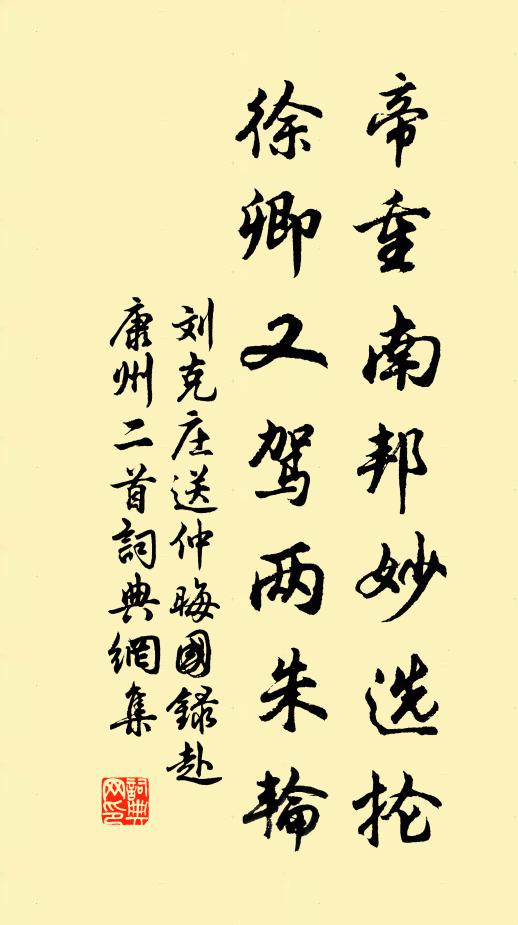 帝重南邦妙选抡
徐卿又驾两朱轮
刘克庄送仲晦國録赴
康州二首詞典網集
詞典网印